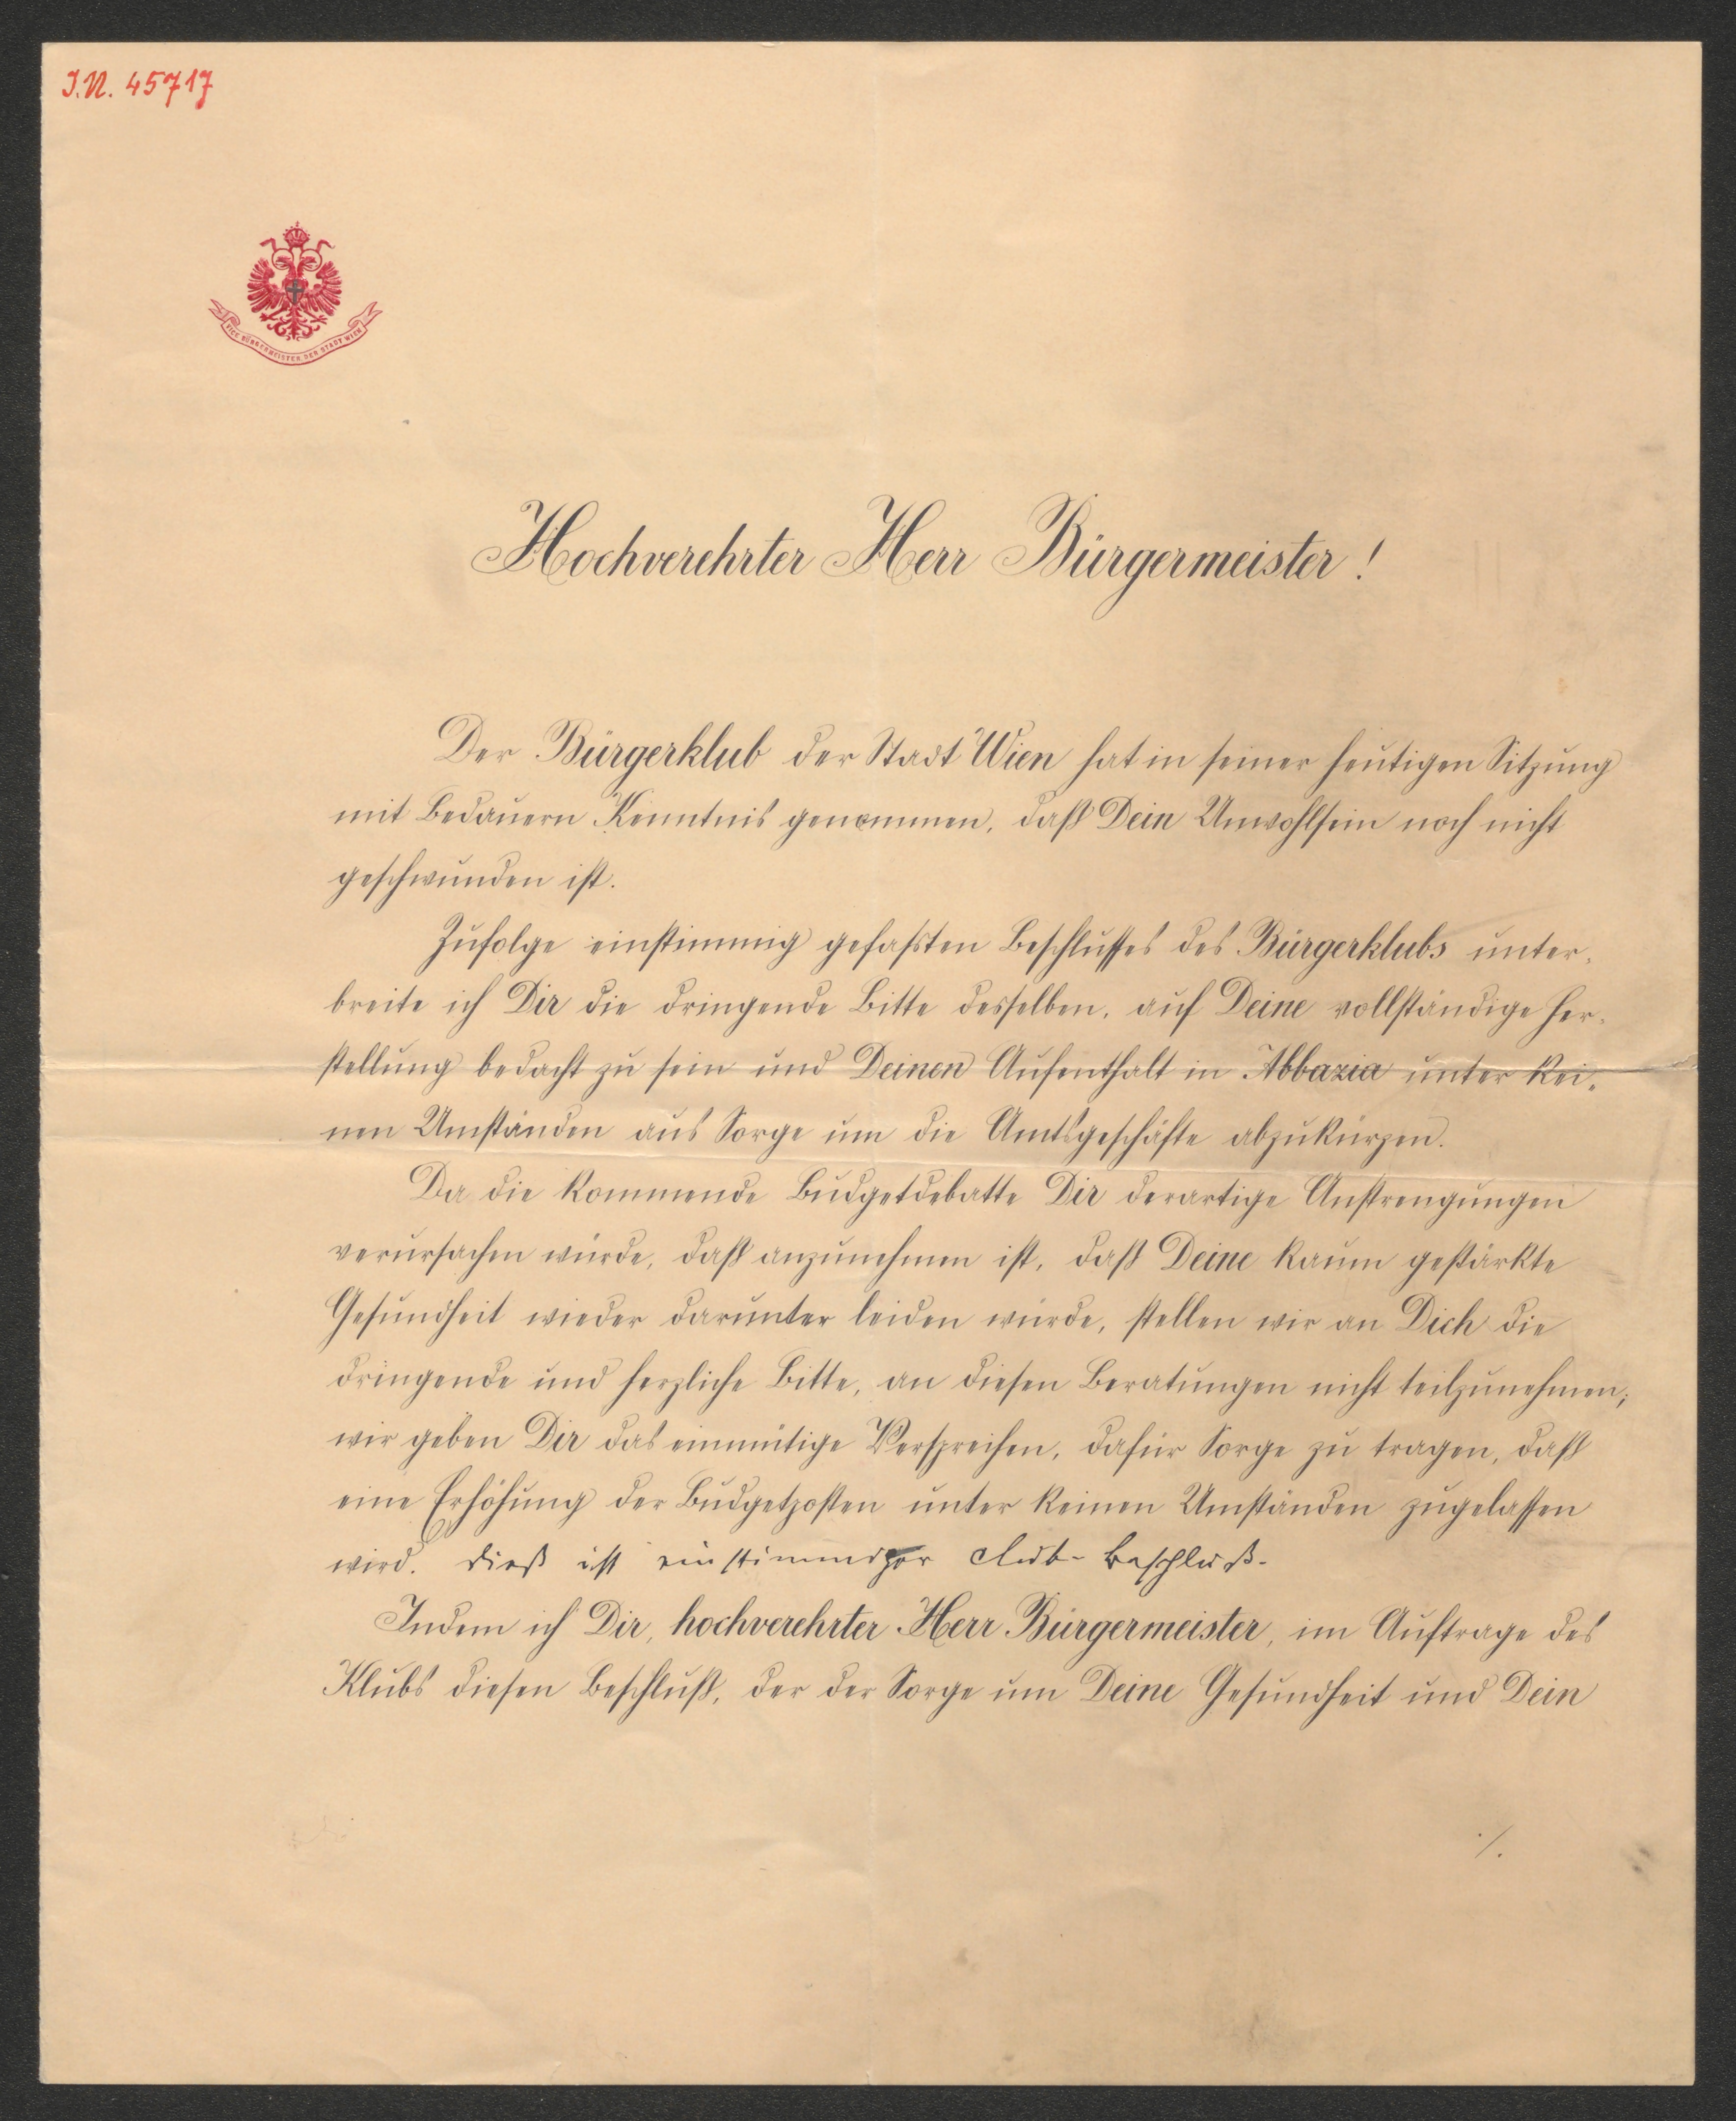 I.N. 45717
VICE-BÜRGERMEISTER DER STADT WIEN
Hochverehrter Herr Bürgermeister!
Der Bürgerklub der Stadt Wien hat in seiner heutigen Sitzung
mit Bedauern Kenntnis genommen, daß Dein Unwohlsein noch nicht
geschwunden ist.
Zufolge einstimmig gefaßten Beschlusses des Bürgerklubs unter-
breite ich Dir die dringende Bitte desselben, auf Deine vollständige Her-
stellung bedacht zu sein und Deinen Aufenthalt in Abbazia unter kei-
nen Umständen aus Sorge um die Amtsgeschäfte abzukürzen.
Da die kommende Budgetdebatte Dir derartige Anstrengungen
verursachen würde, daß anzunehmen ist, daß Deine kaum gestärkte
Gesundheit wieder darunter leiden würde, stellen wir an Dich die
dringende und herzliche Bitte, an diesen Beratungen nicht teilzunehmen;
wir geben Dir das einmütige Versprechen, dafür Sorge zu tragen, daß
eine Erhöhung der Budgetposten unter keinen Umständen zugelassen
wird. Dieß ist einstimmiger Club-Beschluß.
Indem ich Dir, hochverehrter Herr Bürgermeister, im Auftrage des
Klubs diesen Beschluß, der der Sorge um Deine Gesundheit und Dein
./.